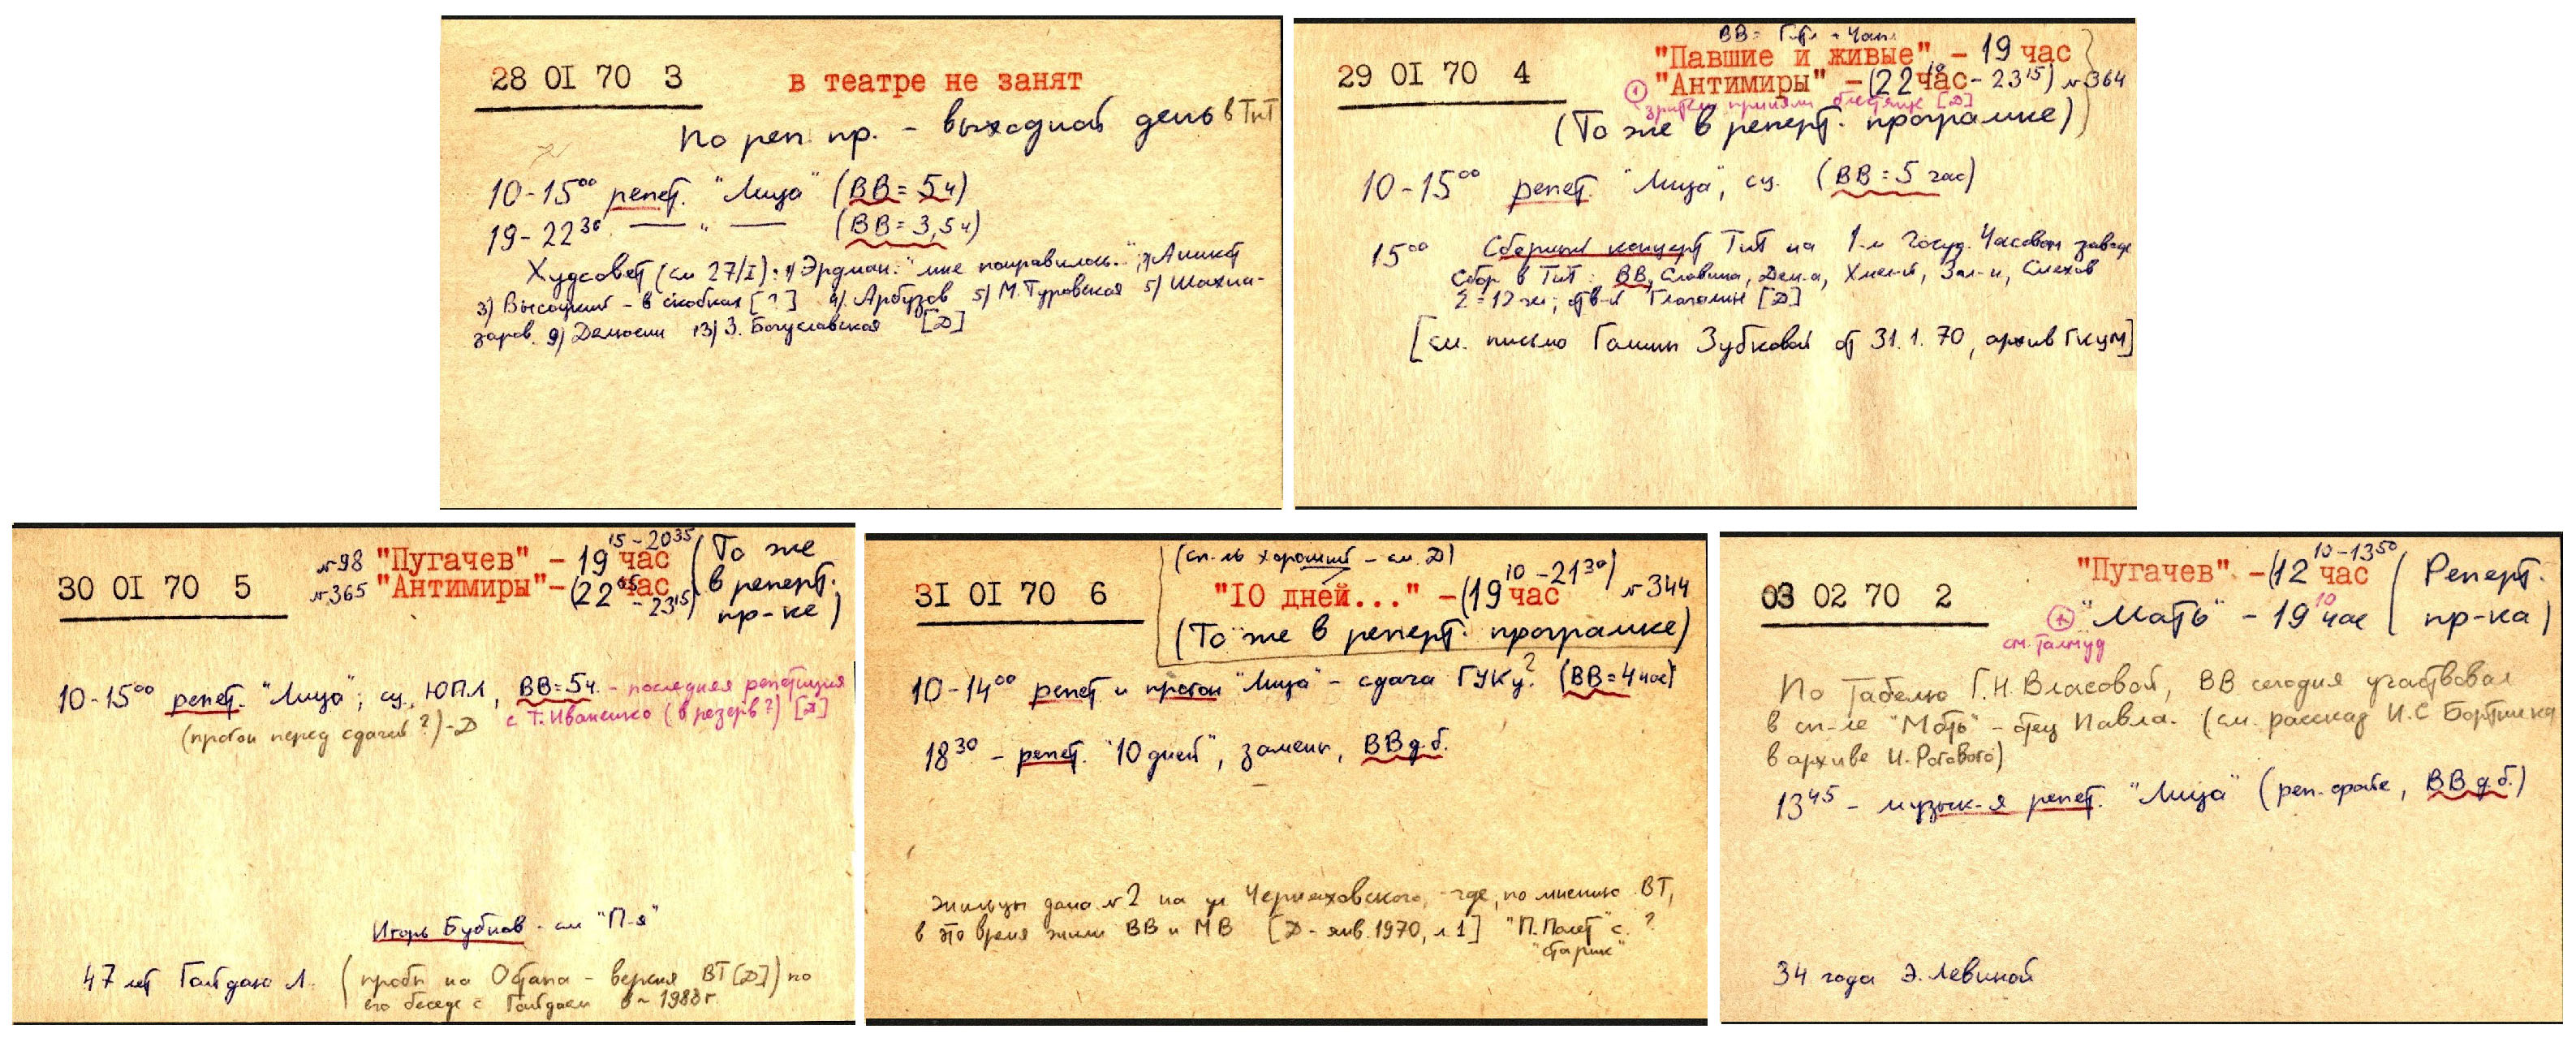 28 OI 70 3
в театре не занят
По реп. пр. - выходной день в ТнТ
10-15⁰⁰ репет. "Лица" (ВВ = 5ч)
19-22³⁰ — " — (ВВ = 3,5ч)
Худсовет (см 27/I): 1) Эрдман: "мне понравилось.."; 2) Аникст
3) Высоцкий - в скобках [?] 4) Арбузов 5) М. Туровская 5) Шахна-
заров. 9) Делюсин 13) З. Богуславская [Д]
29 OI 70 4
ВВ =
"Павшие и живые" - 19 час
"Антимиры" - (22¹⁰ час - 23¹⁵) №364
зрители приняли [Д]
(То же в реперт. програмке)
10-15⁰⁰ репет. "Лица", сц. (ВВ = 5 час)
15⁰⁰ Сборный концерт ТнТ на 1-м Госуд. Часовом заводе
Сбор в ТнТ: ВВ, Славина, Дем-а, Хмел-й, Зол-н, Смехов
Σ = 12 чел; отв-й Глаголин [Д]
[см. письмо Галины Зубковой от 31.1.70, архив ГКЦМ]
30 OI 70 5
№98 "Пугачев" - 19 час ¹⁵-20³⁵ (То же
№365 "Антимиры" - (22⁰⁵ час - 23¹⁵) в реперт.
пр-ке)
10-15⁰⁰ репет. "Лица"; сц., ЮПЛ, ВВ = 5ч. - последняя репетиция
(прогон перед сдачей?) - Д с Т. Иваненко (в резерв?) [Д]
Игорь Бубнов - см "П-я"
47 лет Гайдаю Л. (пробы на Остапа - версия ВТ [Д]) по
его беседе с Гайдаем в ~ 1988 г
3I OI 70 6
(сп-ль хороший - см. Д)
"IO дней..." - (19¹⁰ час - 21³⁰) №344
(То же в реперт. програмке)
10-14⁰⁰ репет и прогон "Лица" - сдача ГУКу? (ВВ = 4 час)
18³⁰ - репет. "10 дней", замены, ВВ д.б.
Жильцы дома №2 на ул Черняховского, где, по мнению ВТ,
в это время жили ВВ и МВ [Д - янв. 1970, л. 1] "П. Полет" с. ?
"старик"
03 02 70 2
"Пугачев". - (12 час ¹⁰-13⁵⁰ (Реперт.
"Мать" - 19¹⁰ час пр-ка)
см. Талмуд
По Табелю Г.Н. Власовой, ВВ сегодня участвовал
в сп-ле "Мать" - отец Павла. (см. рассказ И.С Бортника
в архиве И. Рогового)
13⁴⁵ - музык-я репет. "Лица" (реп. , ВВ д.б.)
34 года Э. Левиной